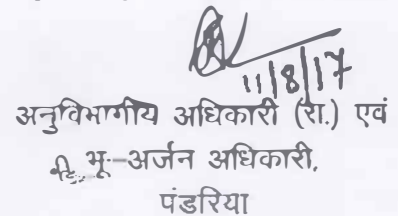 11/8/17
अनुविभागीय अधिकारी (रा.) एवं
भू-अर्जन अधिकारी,
पंडरिया